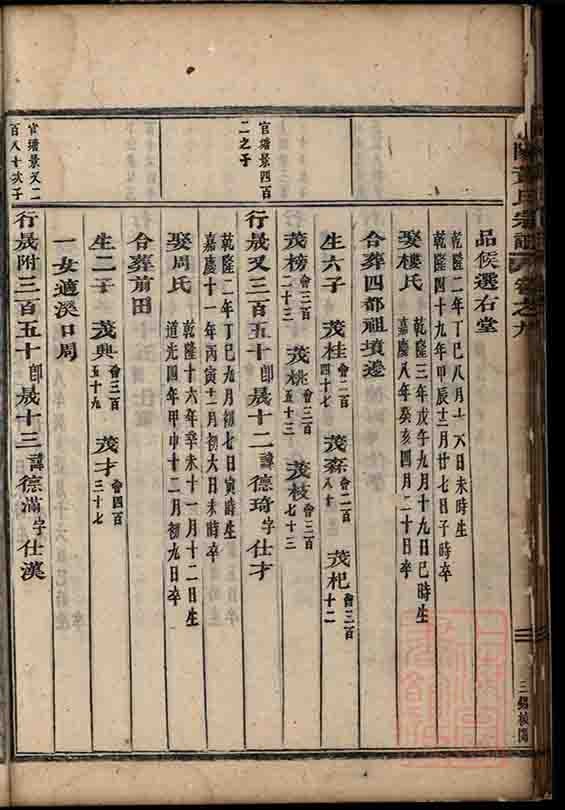 品候選右堂
乾隆二年丁巳八月十六日未時生
乾隆四十九年甲辰十二月廿七日子時卒
娶樓氏
乾隆三年戊午九月十九日巳時生
嘉慶八年癸亥四月二十日卒
合葬四都祖墳邊
生六子 茂桂會二百四十七 茂森會二百八十 茂杞會三百十二
茂榜會三百二十三 茂桃會三百五十三 茂枝會三百七十三
官塘景四百二之子
行晟又三百五十郎晟十二諱德琦字仕才
乾隆二年丁巳九月初七日寅時生
嘉慶十一年丙寅十二月初六日未時卒
娶周氏
乾隆十六年辛未十一月十二日生
道光四年甲申十二月初九日卒
合葬前田
生二子 茂興會三百五十九 茂才會四百三十七
一女適溪口周
官塘景又二百八十次子
行晟附三百五十郎晟十三諱德滿字仕漢
氏宗譜
卷之九